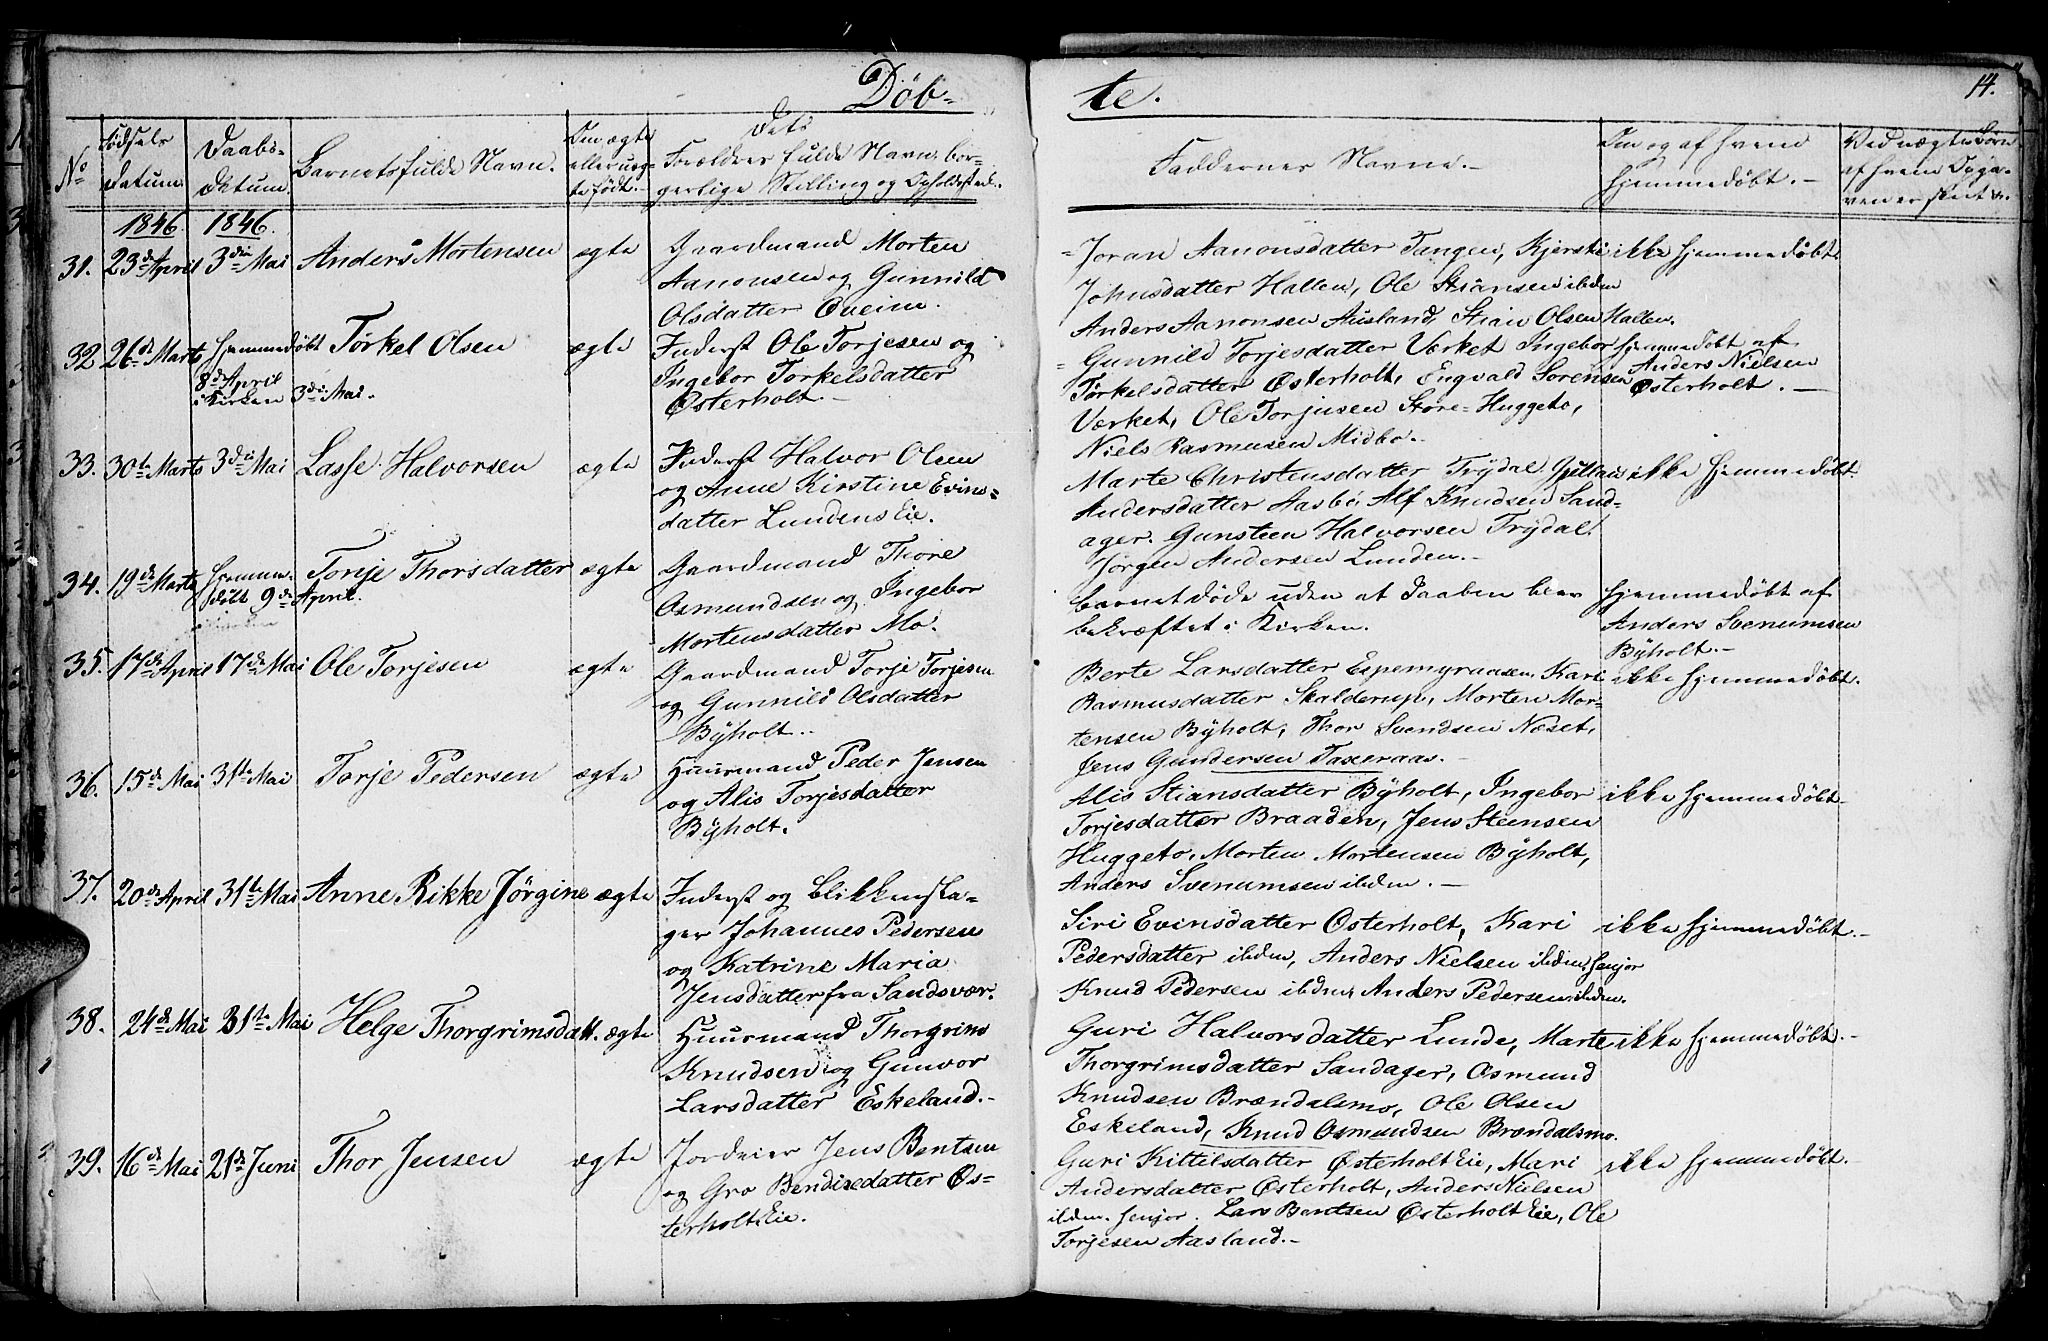 Döb=
te.
14.
No
Fødsels
Datum
Daabs-
Datum
Barnets fulde Navn.
Om ægte
eller uæg-
te født.
Dets
Forældres fulde Navn, bor-
gerlige Stilling og Opholdssted.
Faddernes Navne.
Om og af hvem
hjemmedøbt.
Ved uægte Børn
af hvem Opga-
ven er skeet &.
1846. 1846.
31. 23de April 3die Mai Anders Mortensen ægte
Gaardmand Morten
Aanonsen og Gunnild
Olsdatter Oveim.
Joran Aanonsdatter Tangen, Kjersti
Johnsdatter Hallen, Ole Stiansen ibdm
Anders Aanonsen Ausland, Stian Olsen Hallen.
ikke hjemmedøbt
32 26de Marts Hjemmedøbt
8de April
i Kirken 3die Mai.
Törkel Olsen ægte
Inderst Ole Torjesen og
Ingebor Torkelsdatter
Østerholt.
Gunnild Torjesdatter Værket Ingebor
Törkelsdatter Østerholt, Engvald Sorensen
Værket, Ole Torjusen Store-Huggeto,
Niels Rasmusen Midbo.
hjemmedøbt af
Anders Nielsen
Østerholt.
33. 30te Marts 3die Mai Lasse Halvorsen ægte
Inderst Halvor Olsen
og Anne Kirstine Evins-
datter Lundens Eie.
Marte Christensdatter Trydal,
Andersdatter Aasbö, Alf Knudsen Sand-
ager. Gunsteen Halvorsen Trydal.
Jørgen Andersen Lunden.
ikke hjemmedøbt.
34. 19de Marts Hjemme-
döbt 9de April.
Torije Thorsdatter ægte
Gaardmand Thore
Osmundsen og Ingebor
Mortensdatter Mo.
Barnet døde uden at Daaben blev
bekræftet i Kirken.
hjemmedøbt af
Anders Svenumsen
Byholt.
35. 17de April 17de Mai Ole Torjesen ægte
Gaardmand Torje Torjesen
og Gunnild Olsdatter
Byholt.
Berte Larsdatter Espemyraasen, Kari
Rasmusdatter Skalderup, Morten Mor-
tensen Byholt, Thor Svendsen Næset,
Jens Gundersen Taxeraas.
ikke hjemmedøbt.
36. 15de Mai 31te Mai Torje Pedersen ægte
Huusmand Peder Jensen
og Alis Torjesdatter
Byholt.
Alis Stiansdatter Byholt, Ingebor
Torjesdatter Braaden, Jens Steensen
Huggeto, Morten Mortensen Byholt,
Anders Svenumsen ibdm.
ikke hjemmedøbt
37. 20de April 31te Mai Anne Rikke Jörgine ægte
Inderst og Blikkensla-
ger Johannes Pedersen
og Katrine Maria
Jensdatter fra Sandsvær.
Siri Evinsdatter Østerholt, Kari
Pedersdatter ibdm, Anders Nielsen ibdm, senjor
Knud Pedersen ibdm, Anders Pedersen ibdm.
ikke hjemmedøbt.
38. 24de Mai 31te Mai Helge Thorgrimsdatt. ægte
Huusmand Thorgrim
Knudsen og Gunvor
Larsdatter Eskeland.
Guri Halvorsdatter Lunde, Marte
Thorgrimsdatter Sandager, Osmund
Knudsen Brændalsmo, Ole Olsen
Eskeland, Knud Osmundsen Brændalsmo.
ikke hjemmedøbt.
39. 16de Mai 21de Juni Thor Jensen ægte
Jordeier Jens Bentsen
og Gro Bendixdatter Øs-
terholt Eie.
Guri Kittilsdatter Østerholt Eie, Mari
Andersdatter Østerholt, Anders Nielsen
ibdm. senjor. Lars Bentsen Østerholt Eie, Ole
Torjesen Aasland.
ikke hjemmedøbt.